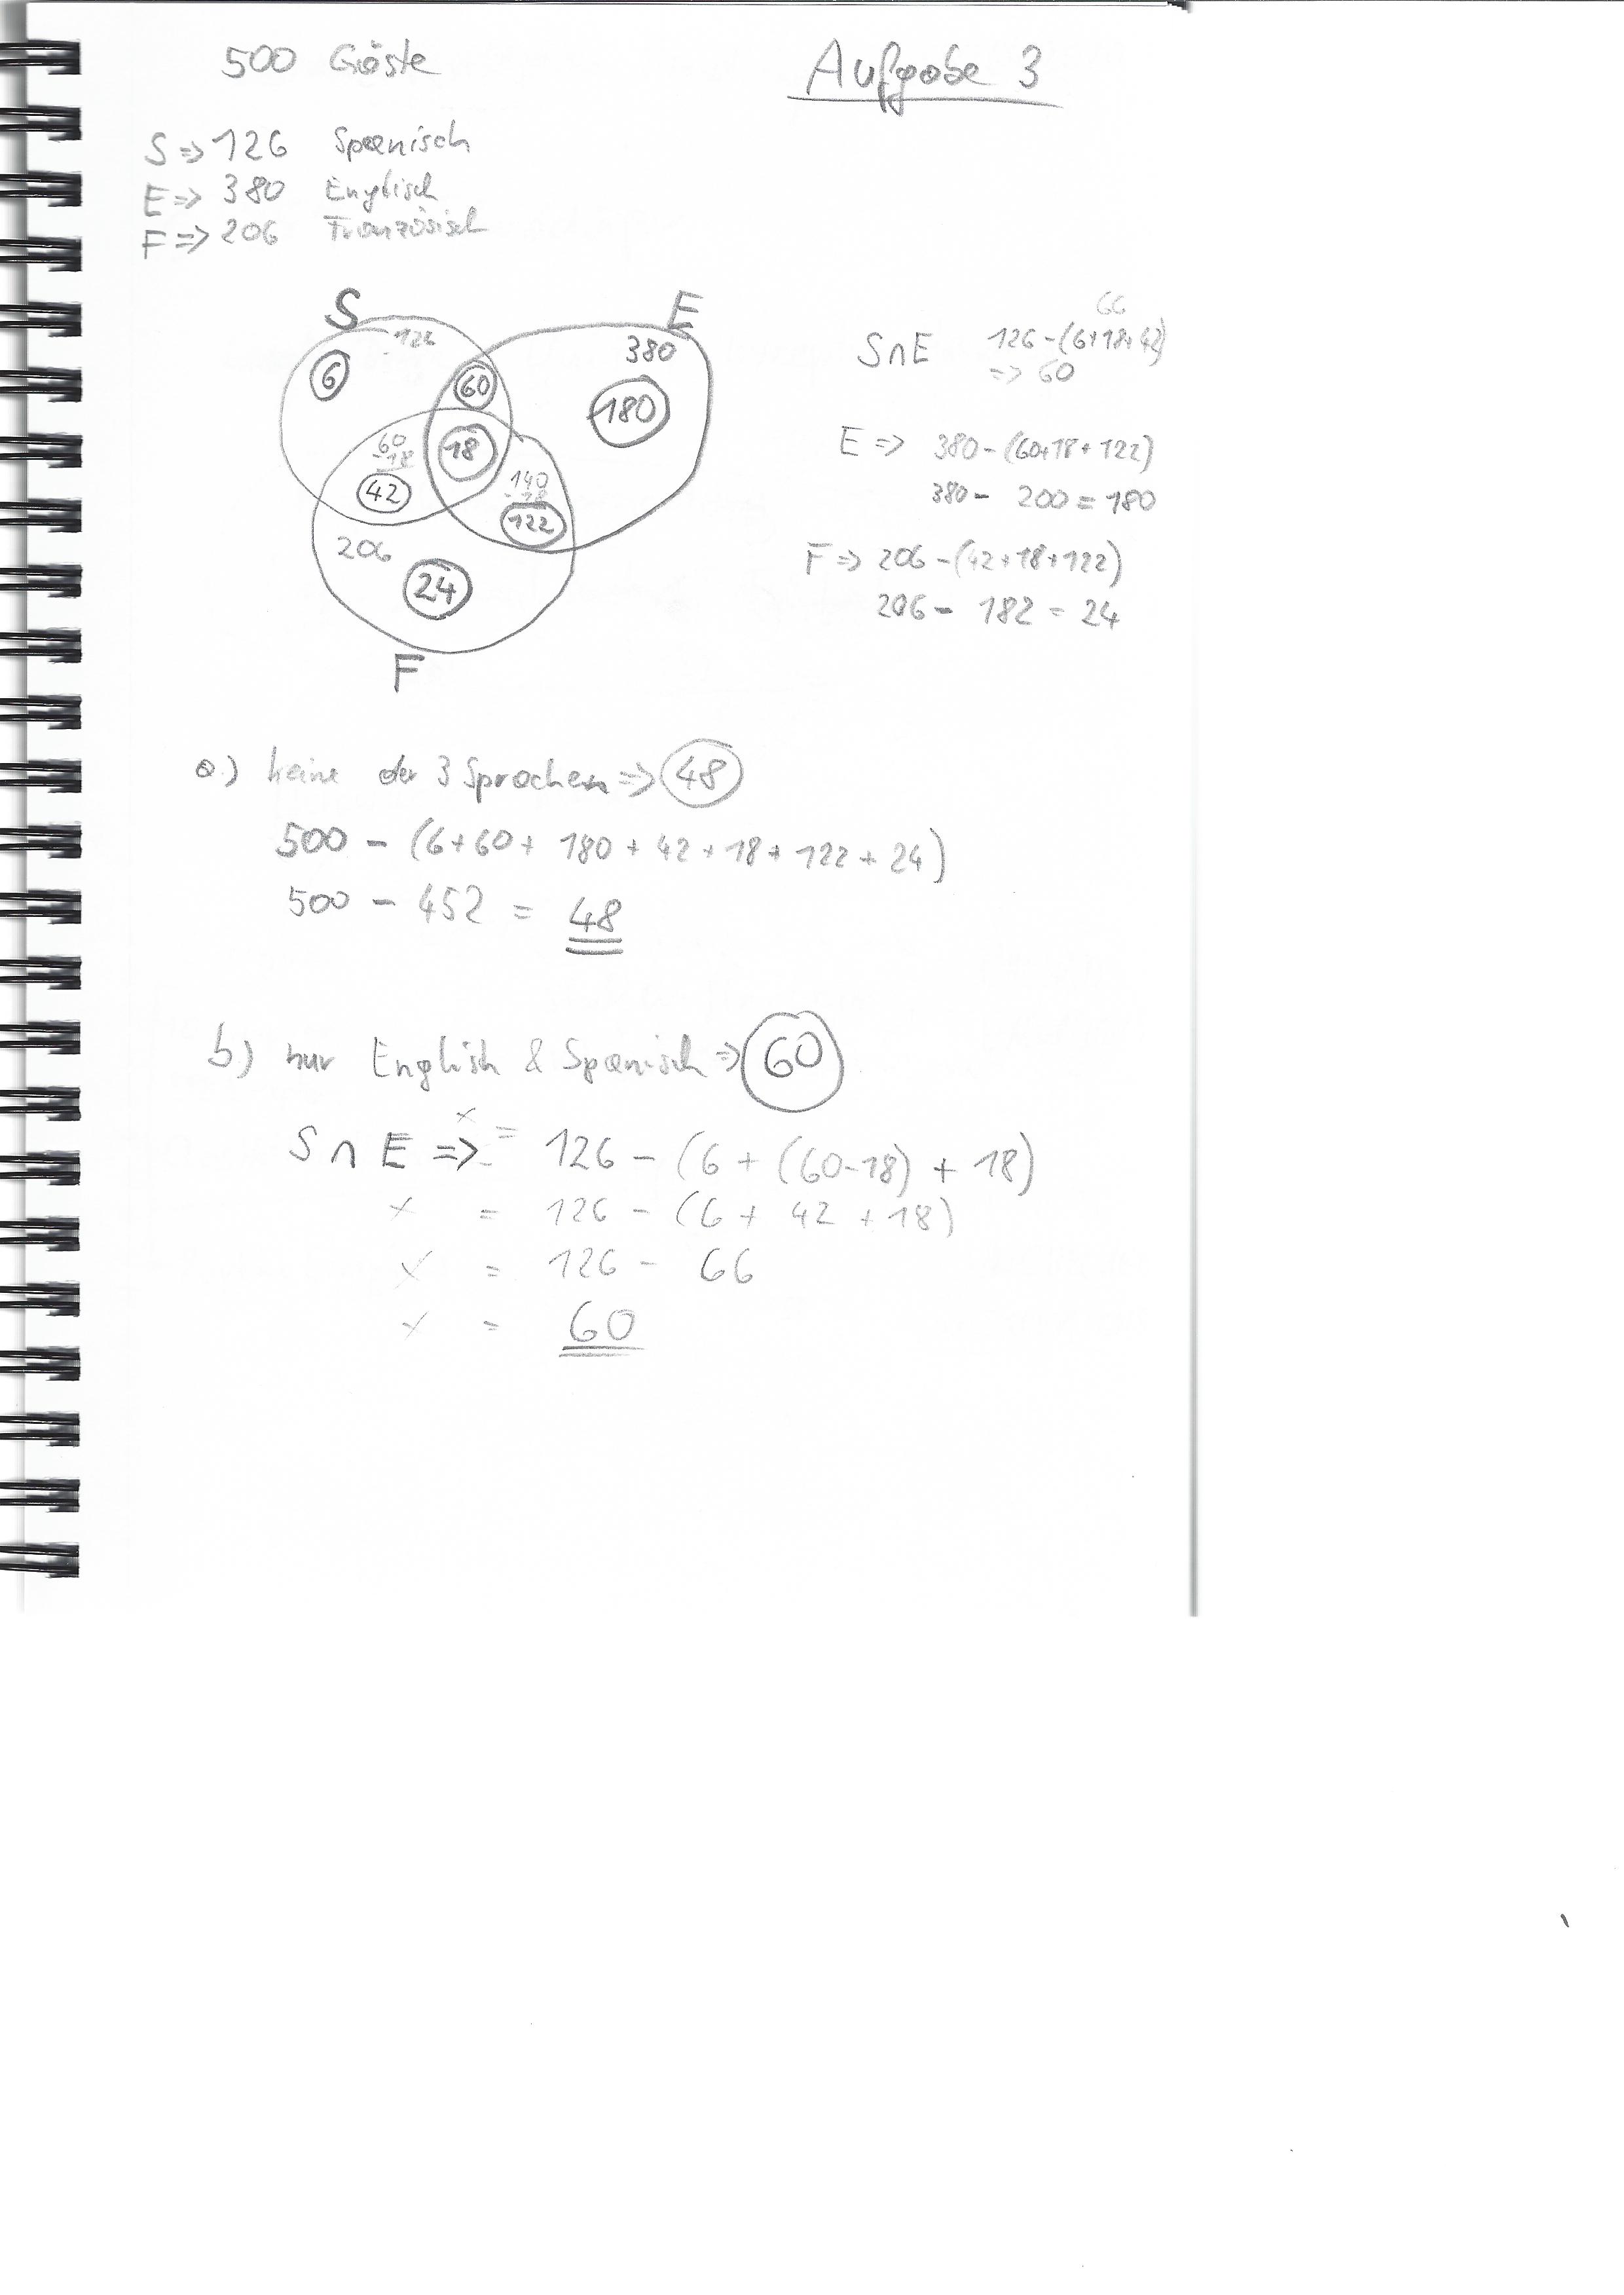 500 Gäste
Aufgabe 3
S => 126 Spanisch
E => 380 Englisch
F => 206 Französisch
S
E
126
380
6
60
180
60
-18
18
42
140
-18
122
206
24
F
66
S∩E 126-(6+18+42)
=> 60
E => 380-(60+18+122)
380- 200 = 180
F => 206-(42+18+122)
206- 182 = 24
a.) keine der 3 Sprachen => 48
500 - (6+60+ 180 + 42 + 18 + 122 + 24)
500 - 452 = 48
b) nur Englisch & Spanisch => 60
x =
S ∩ E => 126 - (6 + (60-18) + 18)
x = 126 - (6 + 42 + 18)
x = 126 - 66
x = 60